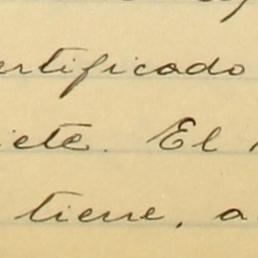 ertificado
iete. El
tiene, a